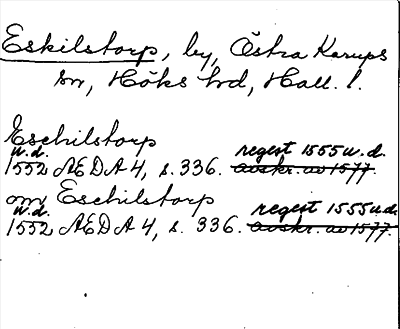 Eskilstorp, by, Östra Karups
sn, Höks hrd, Hall. l.
Eschilstorp
u.d. regest 1555 u.d.
1552 ÆDA 4, s. 336. avskr. av 1577.
om Eschilstorp
u.d. regest 1555 u.d.
1552 ÆDA 4, s. 336. avskr. av 1577.